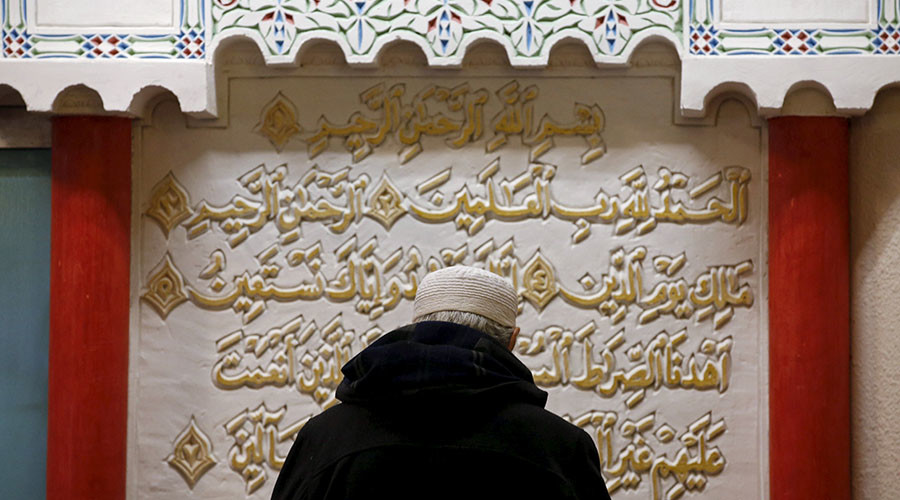 بِسْمِ اللَّهِ الرَّحْمَٰنِ الرَّحِيمِ ١
الْحَمْدُ لِلَّهِ رَبِّ الْعَالَمِينَ ٢ الرَّحْمَٰنِ الرَّحِيمِ ٣
مَالِكِ يَوْمِ الدِّينِ ٤ وَإِيَّاكَ نَسْتَعِينُ ٥
اهْدِنَا الصِّرَاطَ الَّذِينَ أَنْعَمْتَ
عَلَيْهِمْ غَيْرِ ٧